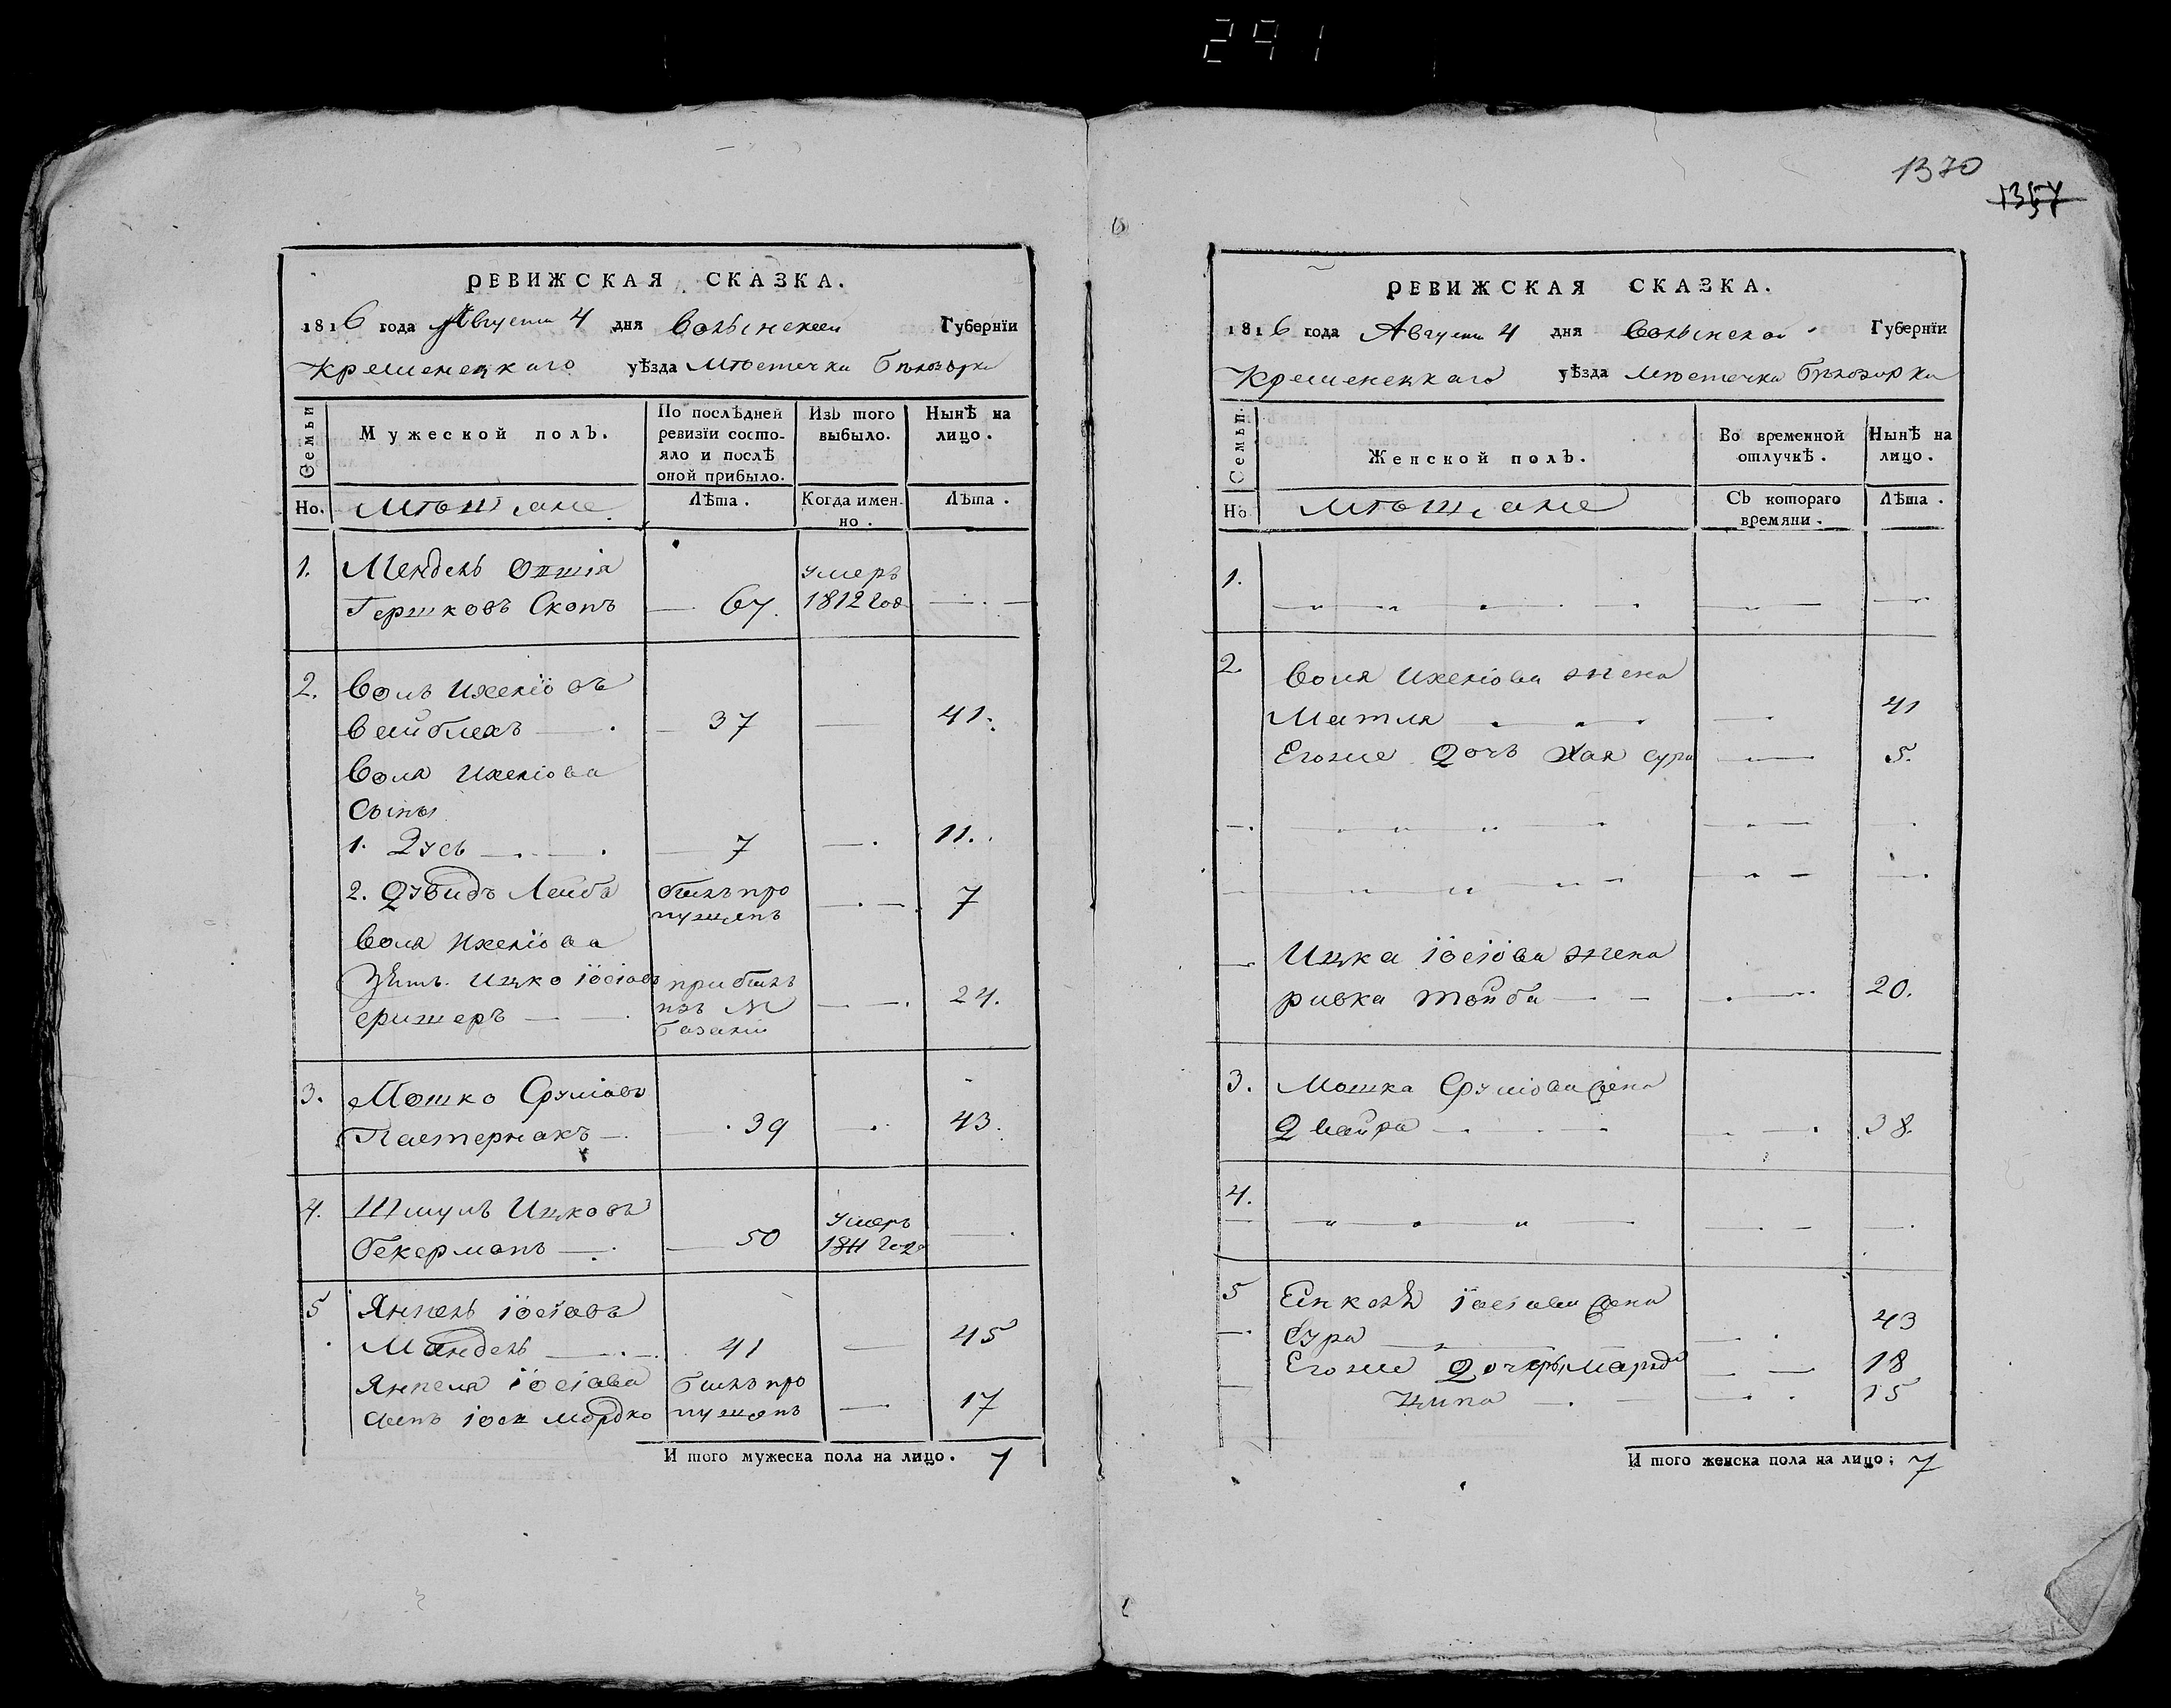 291
1370
1357
РЕВИЖСКАЯ СКАЗКА.
1816 года Августа 4 дня Волынской Губернїи
Кременецкаго уѣзда Мѣстечка Бѣлозорки
Семьи
Мужеской полъ.
По послѣдней ревизїи состо-
яло и послѣ
оной прибыло.
Изъ того
выбыло.
Нынѣ на
лицо.
Но.
Мѣщане
Лѣта.
Когда имен-
но.
Лѣта.
1. Мендель
Гершковъ Скопъ — 67. умеръ 1812 год — . —
2. Волъ Ихелїовъ
Вайблехъ — . — 37 — 41.
Воля Ихелїова
Сыны
1. Зусь — . — . — 7 — . 11.
2. Дувидъ Лейба былъ пропущенъ — . — . 7
Воля Ихелїова
Зять. Ицко їосїовъ прибылъ
еришеръ — — . изъ М — — . 24.
Базалїи
3. Мошко Срулїовъ
Пастернакъ — . — . 39 — . 43.
4. Шмуль Ицковъ
Бекерманъ — . — 50 умеръ 1811 года — .
5 Янкель їосїовъ
Мандель — . — . 41 — 45
Янкеля їосїова былъ про
сынъ їось мордко пущенъ — 17
И того мужеска пола на лицо. 7
РЕВИЖСКАЯ СКАЗКА.
1816 года Августа 4 дня Волынской Губернїи
Кременецкаго уѣзда Мѣстечка Бѣлозорки
Семьи.
Женской полъ.
Во временной
отлучкѣ.
Нынѣ на
лицо.
Но
Мѣщане
Съ котораго
времяни.
Лѣта.
1.
2. Воля Ихелїова жена
Матля — . — . — . — 41
Егоже Дочь Хая сура — 5.
Ицка їосїова жена
ривка тойба — — . — 20.
3. Мошка Срулїова жена
Двойра — . — . — — . — . 38.
4.
5 Енкеля їосїова жена
Сура — 43
Егоже Дочери Маріа — 18
Ципа — . — — . . 15
И того женска пола на лицо; 7